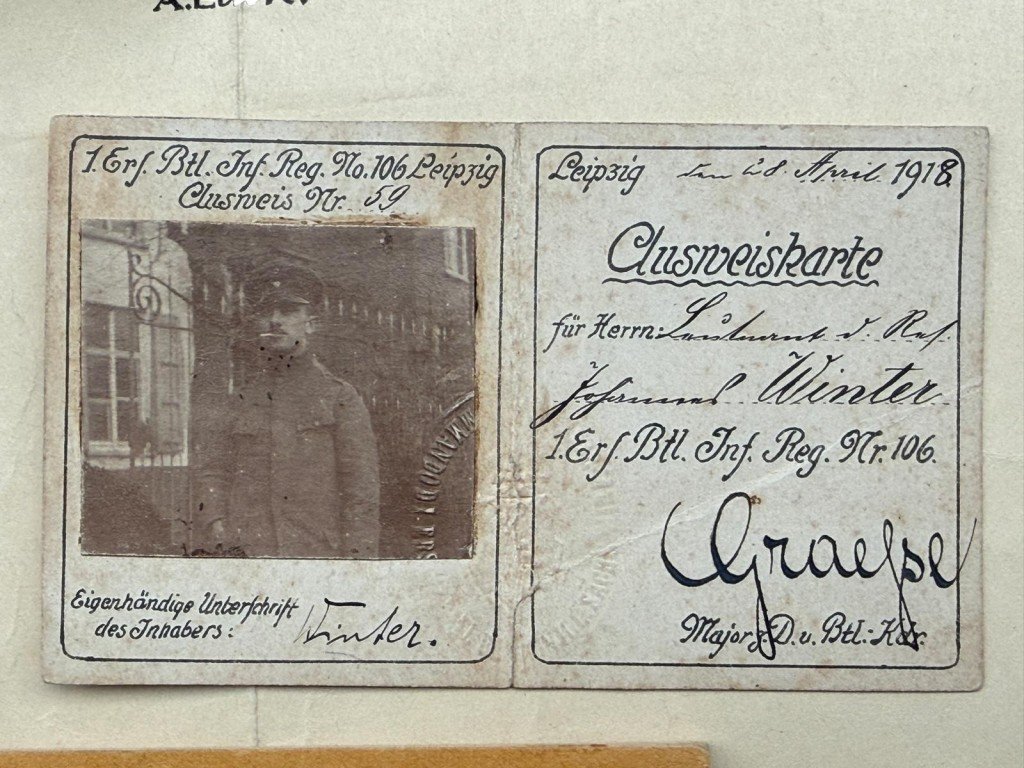 1. Erſ. Btl. Inf. Reg. No. 106 Leipzig
Ausweis Nr. 59
KOMMANDO I. ERS
Eigenhändige Unterſchrift
des Inhabers: Winter.
Leipzig den 28. April 1918.
Ausweiskarte
für Herrn: Leutnant d. Res.
Johannes Winter
1. Erſ. Btl. Inf. Reg. Nr. 106.
Graeſse
Major z. D. u. Btl.-Kdr.